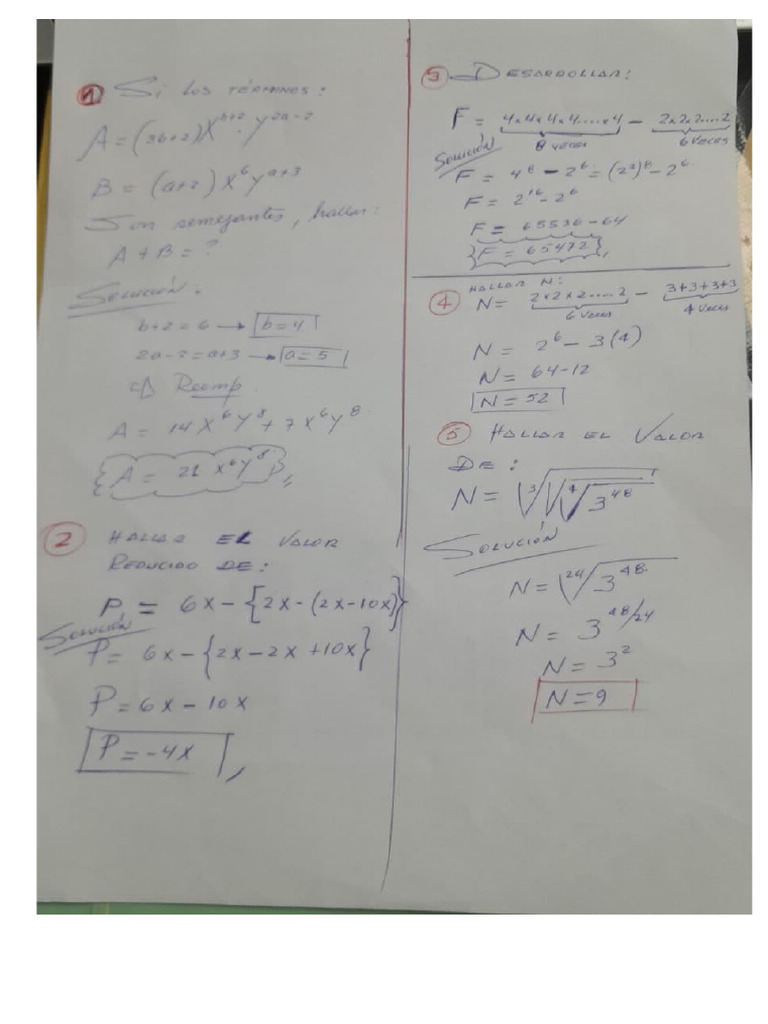 1 Si los términos:
A = (3b+2)x^{b+2} · y^{2a-2}
B = (a+2) x^6 y^{a+3}
Son semejantes, hallar:
A + B = ?
Solución:
b+2 = 6 → b=4
2a-2=a+3 → a=5
Reemp.
A = 14x^6y^8 + 7x^6y^8
A = 21 x^6y^8
2 HALLAR EL VALOR
REDUCIDO DE:
P = 6x - {2x - (2x-10x)}
Solución
P = 6x - {2x - 2x + 10x}
P = 6x - 10x
P = -4x
3 DESARROLLAR:
F = 4x4x4x4.....x4 - 2x2x2....2
8 veces 6 veces
Solución
F = 4^8 - 2^6 = (2^2)^8 - 2^6
F = 2^{16} - 2^6
F = 65536 - 64
F = 65472
4 HALLAR N:
N = 2x2x2.....2 - 3+3+3+3
6 veces 4 veces
N = 2^6 - 3(4)
N = 64-12
N = 52
5 HALLAR EL VALOR
DE:
N = ∛√√∜3^{48}
Solución
N = ²⁴√3^{48}
N = 3^{48/24}
N = 3^2
N = 9